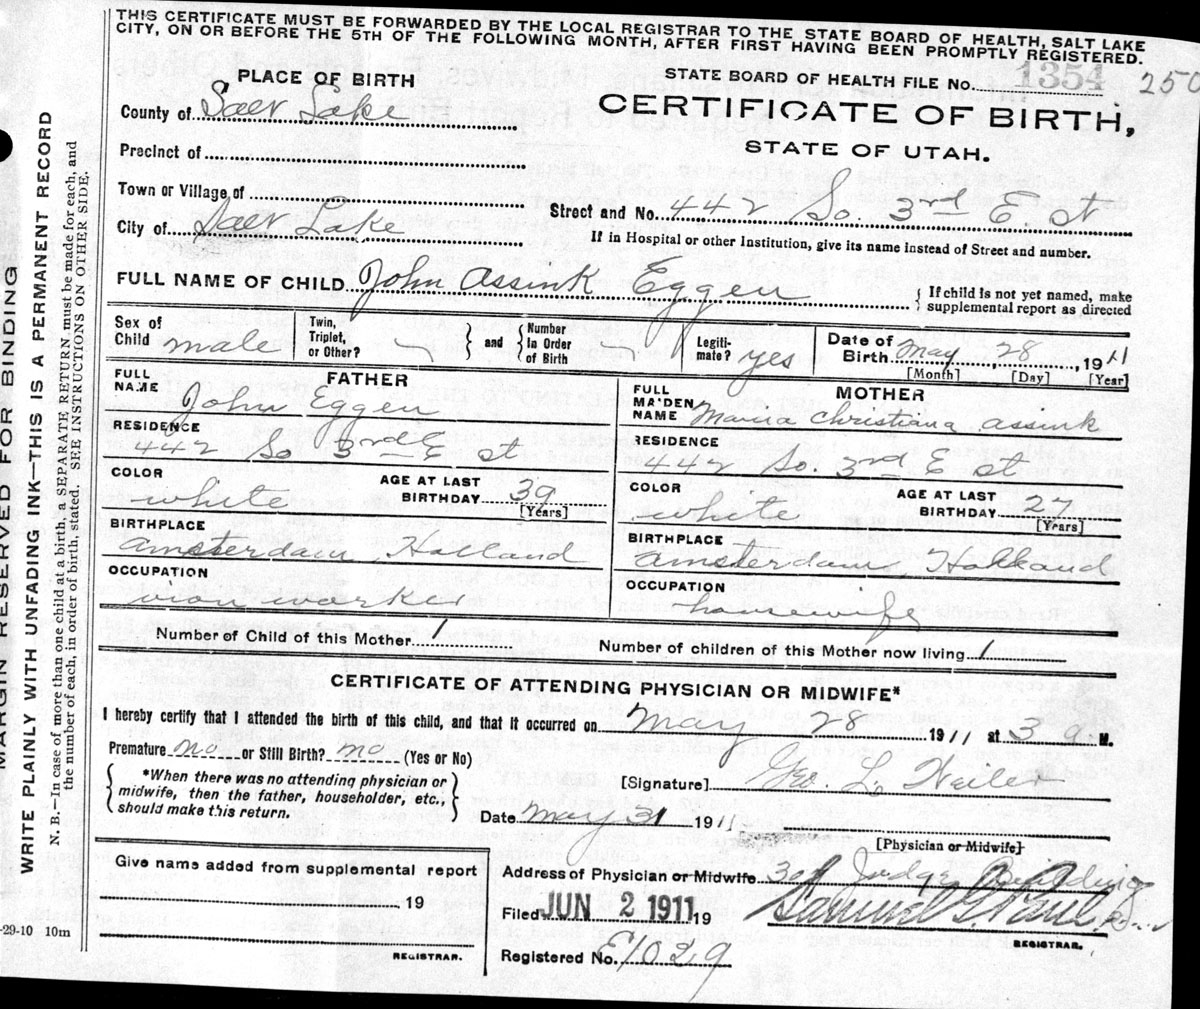 THIS CERTIFICATE MUST BE FORWARDED BY THE LOCAL REGISTRAR TO THE STATE BOARD OF HEALTH, SALT LAKE
CITY, ON OR BEFORE THE 5TH OF THE FOLLOWING MONTH, AFTER FIRST HAVING BEEN PROMPTLY REGISTERED.
MARGIN RESERVED FOR BINDING
WRITE PLAINLY WITH UNFADING INK—THIS IS A PERMANENT RECORD
N. B.—In case of more than one child at a birth, a SEPARATE RETURN must be made for each, and
the number of each, in order of birth, stated. SEE INSTRUCTIONS ON OTHER SIDE.
PLACE OF BIRTH
STATE BOARD OF HEALTH FILE No. 1354 250
County of Salt Lake
CERTIFICATE OF BIRTH,
STATE OF UTAH.
Precinct of
Town or Village of
Street and No. 442 So. 3rd E. St
City of Salt Lake
If in Hospital or other Institution, give its name instead of Street and number.
FULL NAME OF CHILD John Assink Eggen
If child is not yet named, make
supplemental report as directed
Sex of Child male
Twin, Triplet, or Other?
and
Number In Order of Birth
Legitimate? yes
Date of Birth May 28, 1911
[Month] [Day] [Year]
FATHER
FULL NAME John Eggen
RESIDENCE
442 So 3rd E St
COLOR white
AGE AT LAST BIRTHDAY 39
[Years]
BIRTHPLACE
Amsterdam, Holland
OCCUPATION
iron worker
MOTHER
FULL MAIDEN NAME Maria Christiana Assink
RESIDENCE
442 So. 3rd E St
COLOR white
AGE AT LAST BIRTHDAY 27
[Years]
BIRTHPLACE
Amsterdam, Holland
OCCUPATION
housewife
Number of Child of this Mother 1
Number of children of this Mother now living 1
CERTIFICATE OF ATTENDING PHYSICIAN OR MIDWIFE*
I hereby certify that I attended the birth of this child, and that it occurred on May 28 1911 at 3 a. M.
Premature no or Still Birth? no (Yes or No)
*When there was no attending physician or
midwife, then the father, householder, etc.,
should make this return.
[Signature] Geo. L.
Date May 31 1911
[Physician or Midwife]
Give name added from supplemental report
19
REGISTRAR.
Address of Physician or Midwife Judge Building
Filed JUN 2 1911 19
Samuel G. Paul
REGISTRAR.
Registered No. E1029
-29-10 10m